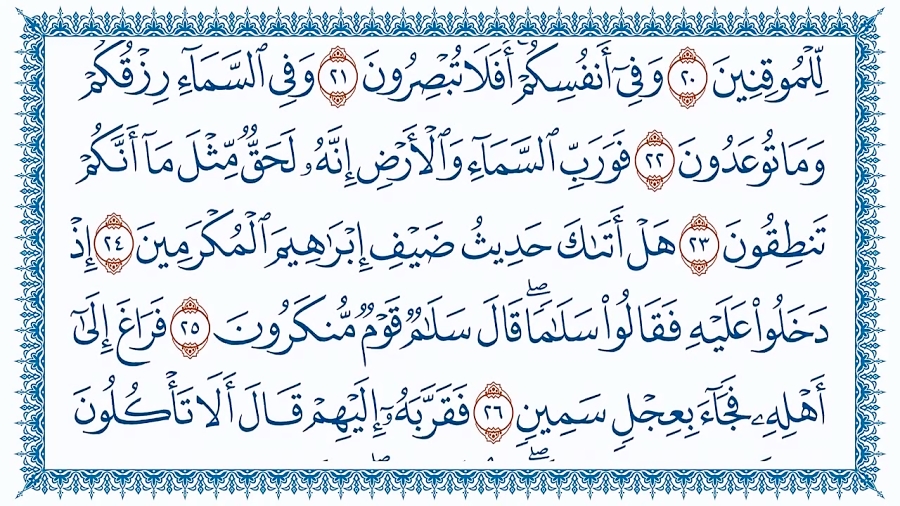 لِّلْمُوقِنِينَ ٢٠ وَفِىٓ أَنفُسِكُمْ ۚ أَفَلَا تُبْصِرُونَ ٢١ وَفِى ٱلسَّمَآءِ رِزْقُكُمْ
وَمَا تُوعَدُونَ ٢٢ فَوَرَبِّ ٱلسَّمَآءِ وَٱلْأَرْضِ إِنَّهُۥ لَحَقٌّ مِّثْلَ مَآ أَنَّكُمْ
تَنطِقُونَ ٢٣ هَلْ أَتَىٰكَ حَدِيثُ ضَيْفِ إِبْرَٰهِيمَ ٱلْمُكْرَمِينَ ٢٤ إِذْ
دَخَلُوا۟ عَلَيْهِ فَقَالُوا۟ سَلَٰمًا ۖ قَالَ سَلَٰمٌ قَوْمٌ مُّنكَرُونَ ٢٥ فَرَاغَ إِلَىٰٓ
أَهْلِهِۦ فَجَآءَ بِعِجْلٍ سَمِينٍ ٢٦ فَقَرَّبَهُۥٓ إِلَيْهِمْ قَالَ أَلَا تَأْكُلُونَ